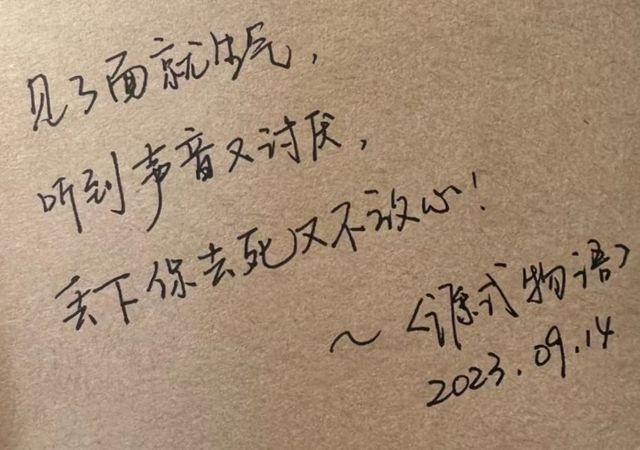 见了面就生气，
听到声音又讨厌，
丢下你去死又不放心！
～《源式物语》
2023.09.14